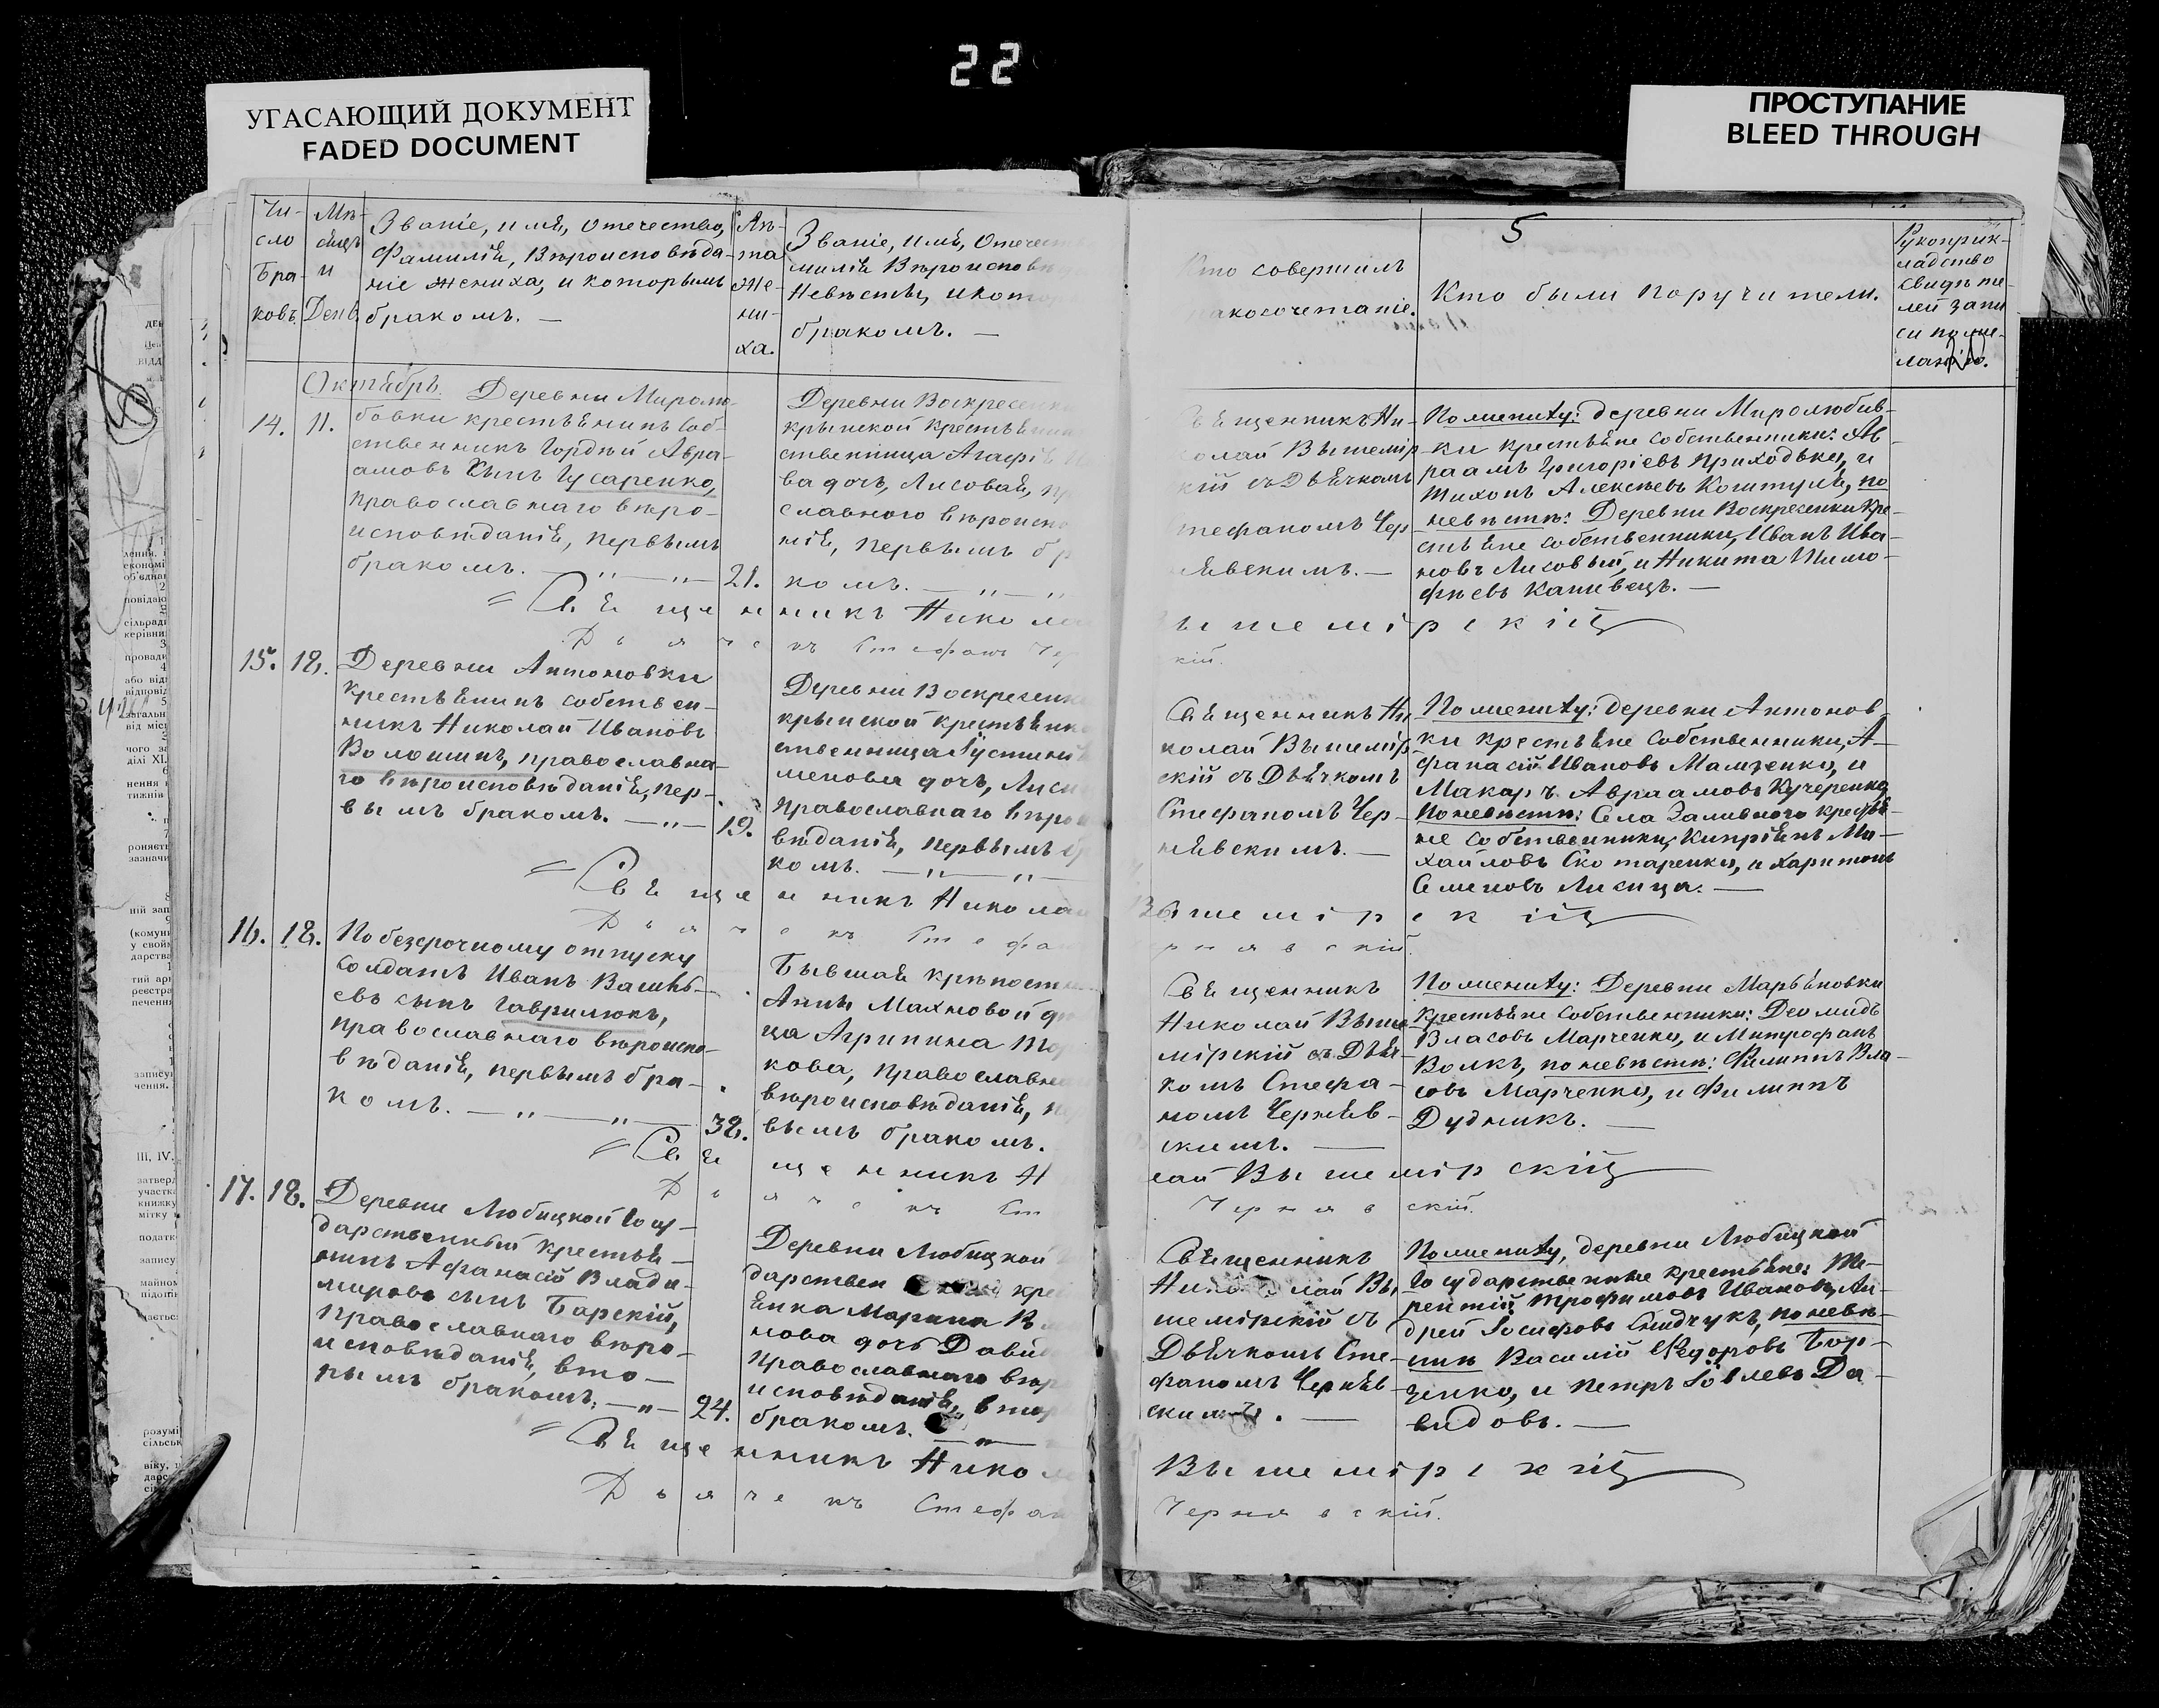 22
УГАСАЮЩИЙ ДОКУМЕНТ
FADED DOCUMENT
ПРОСТУПАНИЕ
BLEED THROUGH
5
Чи-
сло
Бра-
ковъ.
Мѣ-
сяцъ
и
День.
Званіе, имя, отечество,
Фамилія, Вѣроисповѣда-
ніе жениха, и которымъ
бракомъ. —
Лѣ-
та
же-
ни-
ха.
Званіе, имя, Отечест
милія Вѣроисповѣ
Невѣсты, и кото
бракомъ. —
Кто совершилъ
акосочетаніе.
Кто были поручители.
Рукоприк-
ладство
свидѣте-
лей запи
си по же-
ланію.
Октябрь.
14. 11.
Деревни Миролю-
бовки крестьянинъ соб-
ственникъ Гордѣй Авра-
амовъ сынъ Гусаренко,
православнаго вѣро-
исповѣданія, первымъ
бракомъ. — „ — „ —
21.
Деревни Воскресенки
крымской крестьянка
ственница Агафія
ва дочь, Лисовая, пр
славного вѣроиспо
нія, первымъ бр
комъ. — „ — „
ященникъ Ни-
олай Вышемір
кій съ Дьячкомъ
тефаномъ Чер
нявскимъ. —
По жениху: деревни Миролюбив-
ки крестьяне собственники: Ав
раамъ Григорієвъ Приходько, и
Тихонъ Алексѣевъ Коштуля, по
невѣстѣ: Деревни Воскресенки Кре-
стьяне собственники, Иванъ Ива-
новъ Лисовый, и Никита Тимо-
фѣевъ Каневецъ. —
Священникъ Николай Вышемірскій
Дьячекъ Стефанъ Чер кій.
15. 12.
Деревни Антоновки
крестьянинъ собствен-
никъ Николай Ивановъ
Волошинъ, православна-
го вѣроисповѣданія, пер-
вымъ бракомъ. — „ —
19.
Деревни Воскресенк
крымской крестьянка
ственница Іустинія
менова дочь, Лиси
православнаго вѣрои
вѣданія, первымъ бр
комъ. — „ — „ —
Священникъ Ни
колай Вышемір
скій съ Дьячкомъ
Стефаномъ Чер-
нявскимъ. —
По жениху: деревни Антонов-
ки крестьяне собственники, А-
фанасій Ивановъ Мамченко, и
Макаръ Авраамовъ Кучеренко,
По невѣстѣ: Села Заливного крестья
не собственники, Кипріянъ Ми-
хайловъ Скотаренко, и Харитонъ
Семеновъ Лисица. —
Священникъ Николай Вышемірскій
Дьячекъ Стефа рнявскій
16. 18.
По безсрочному отпуску
солдатъ Иванъ Василь-
евъ сынъ Гаврилюкъ,
православнаго вѣроиспо-
вѣданія, первымъ бра-
комъ. — „ — „ —
32.
Бывшая крѣпостн
Анны Махновой
ца Агрипина
кова, православна
вѣроисповѣданія, п
вымъ бракомъ.
Священникъ
Николай Выше
мірскій съ Дьяч-
комъ Стефа-
номъ Черняв-
скимъ. —
По жениху: Деревни Марьяновки
крестьяне собственники: Деомидъ
Власовъ Марченко, и Митрофанъ
Волкъ, по невѣстѣ: Филиппъ Вла-
совъ Марченко, и Филиппъ
Дудникъ. —
Священникъ Н лай Вышемірскій
Дьячекъ Ст Чернявскій.
17. 18.
Деревни Любицкой Госу-
дарственный крестья-
нинъ Афанасій Влади-
міровъ сынъ Барскій,
православнаго вѣро-
исповѣданія, вто-
рымъ бракомъ. — „ —
24.
Деревни Любицкой
дарствен кре
янка Марина
нова дочь Давид
православнаго вѣро
исповѣданія, втор
бракомъ. — „ —
Священникъ
Николай Вы
шемірскій съ
Дьячкомъ Сте-
фаномъ Черняв-
скимъ. —
По жениху, деревни Любицкой
Государственные крестьяне: Те-
рентій Трофимовъ Ивановъ, Ан-
дрей Іосифовъ Снидчукъ, по невѣ-
стѣ Василій Ѳедоровъ Бор-
ценко, и Петръ Іовлевъ Да-
видовъ. —
Священникъ Никол Вышемірскій
Дьячекъ Стефан Чернявскій.